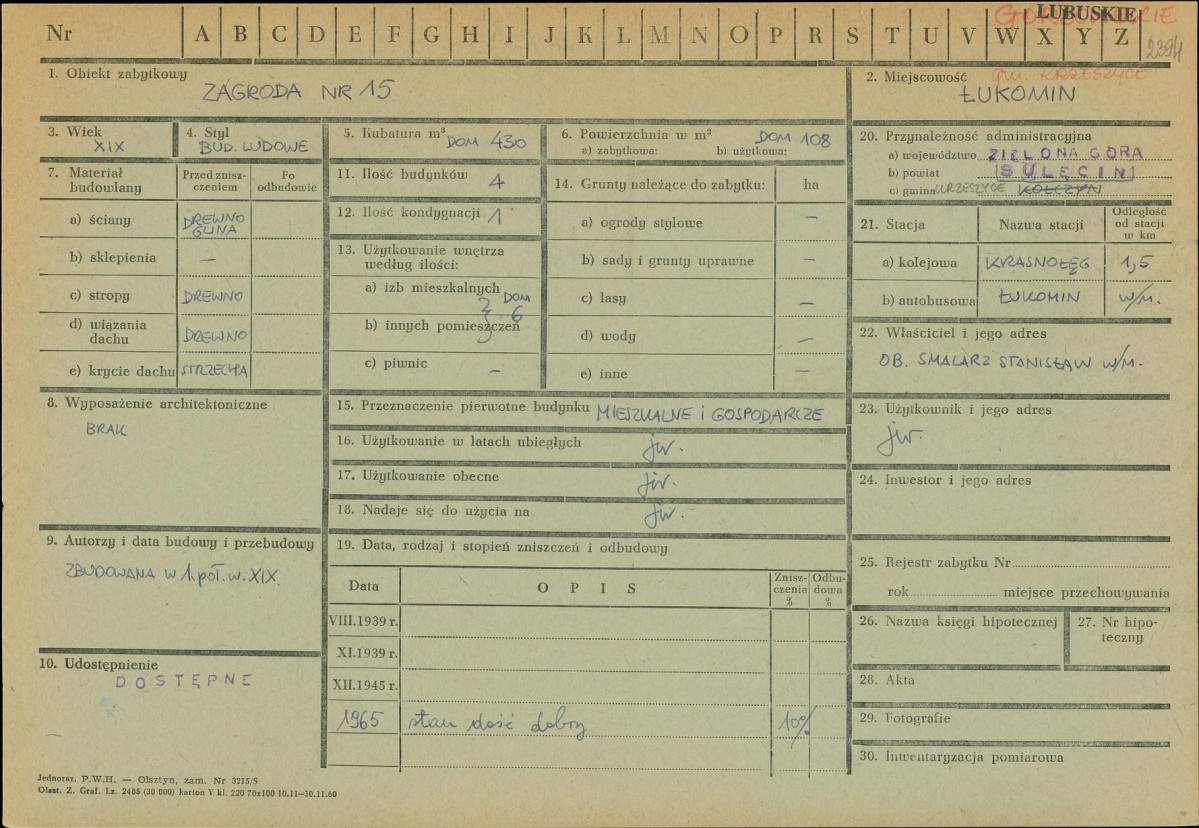 Nr A B C D E F G H I J K L M N O P R S T U V W X Y Z
LUBUSKIE
2394
1. Obiekt zabytkowy
ZAGRODA NR 15
2. Miejscowość gm. KRZESZYCE
ŁUKOMIN
3. Wiek
XIX
4. Styl
BUD. LUDOWE
5. Kubatura m³ DOM 430
6. Powierzchnia w m² DOM 108
a) zabytkowa: b) użytkowa:
7. Materiał budowlany
Przed znisz-
czeniem
Po
odbudowie
a) ściany DREWNO
GLINA
b) sklepienia —
c) stropy DREWNO
d) wiązania
dachu DREWNO
e) krycie dachu STRZECHA
8. Wyposażenie architektoniczne
BRAK
9. Autorzy i data budowy i przebudowy
ZBUDOWANA W 1. POŁ. W. XIX.
10. Udostępnienie
DOSTĘPNE
11. Ilość budynków 4
12. Ilość kondygnacji 1
13. Użytkowanie wnętrza
według ilości:
a) izb mieszkalnych
DOM
6
b) innych pomieszczeń
c) piwnic —
14. Grunty należące do zabytku: ha
a) ogrody stylowe —
b) sady i grunty uprawne —
c) lasy —
d) wody —
e) inne —
15. Przeznaczenie pierwotne budynku MIESZKALNE i GOSPODARCZE
16. Użytkowanie w latach ubiegłych jw.
17. Użytkowanie obecne jw.
18. Nadaje się do użycia na jw.
19. Data, rodzaj i stopień zniszczeń i odbudowy
Data OPIS Znisz-
czenia
% Odbu-
dowa
%
VIII.1939 r.
XI.1939 r.
XII.1945 r.
1965 stan dość dobry 10%
20. Przynależność administracyjna
a) województwo ZIELONA GÓRA
b) powiat SULĘCIN
c) gmina KRZESZYCE KOŁCZYN
21. Stacja Nazwa stacji Odległość
od stacji
w km
a) kolejowa KRASNOŁĘG 1,5
b) autobusowa ŁUKOMIN W/M.
22. Właściciel i jego adres
OB. SMALARZ STANISŁAW W/M.
23. Użytkownik i jego adres
jw.
24. Inwestor i jego adres
25. Rejestr zabytku Nr
rok miejsce przechowywania
26. Nazwa księgi hipotecznej
27. Nr hipo-
teczny
28. Akta
29. Fotografie
30. Inwentaryzacja pomiarowa
Jednoraz. P.W.H. — Olsztyn, zam. Nr 3215/S
Olszt. Z. Graf. Lz. 2485 (30 000) karton V kl. 220 70x100 10.11—30.11.60